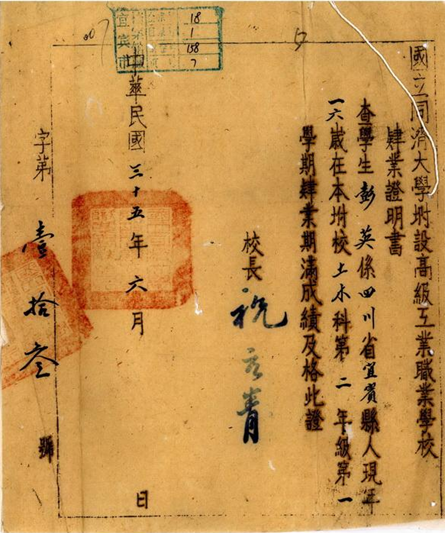 國立同濟大學附設高級工業職業學校
肄業證明書
查學生彭英係四川省宜賓縣人現年
一六歲在本附校土木科第二年級第一
學期肄業期滿成績及格此證
校長 祝元青
中華民國三十五年六月 日
字第壹拾叁號
18
1
158
7